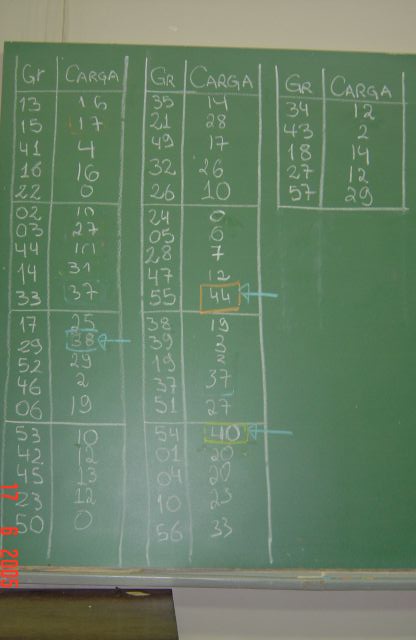 Gr CARGA
13 16
15 17
41 4
16 16
22 0
02
03 27
44
14 31
33 37
17 25
29 38
52 29
46 2
06 19
53 10
42 12
45 13
23 12
50 0
GR CARGA
35 14
21 28
49 17
32 26
26 10
24 0
05 6
28 7
47 12
55 44
38 19
39 3
19 2
37 37
51 27
54 40
01 20
04 20
10 23
56 33
GR CARGA
34 12
43 2
18 14
27 12
57 29
17 6 2005